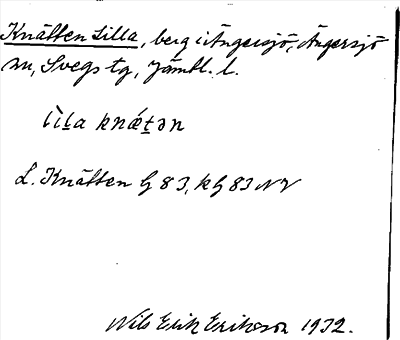 Knätten Lilla, berg i Ängersjö, Ängersjö
sn, Svegs tg, Jämtl. l.
lìl̠a knǽt̠ən
L. Knätten G 83, kg 83 NV
Nils Erik Eriksson 1932.